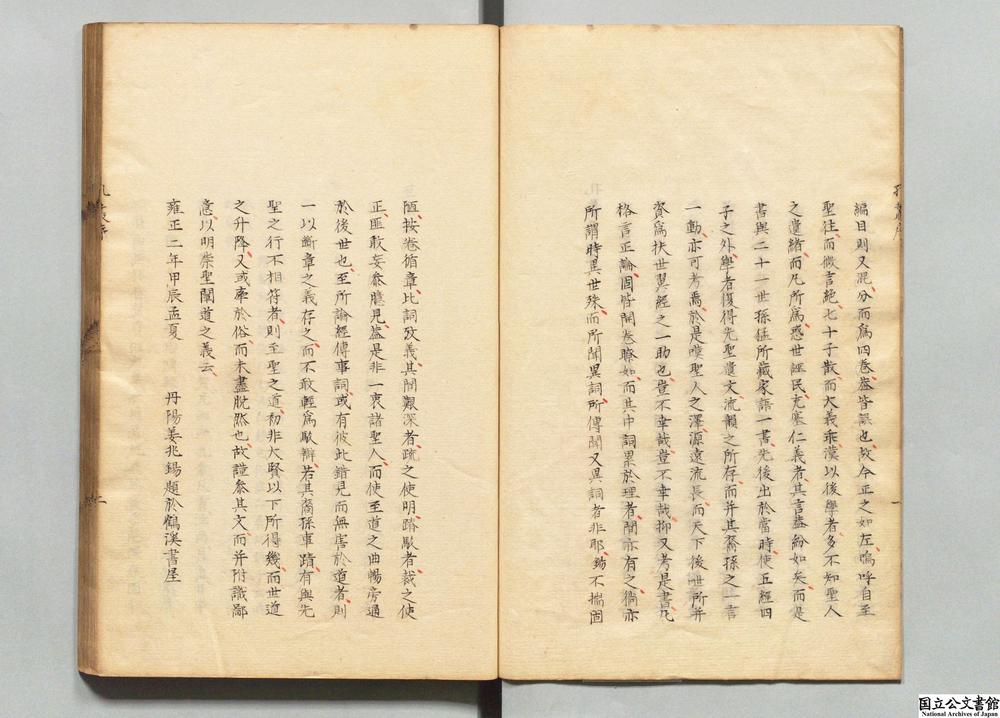 編目則又混分而爲四卷蓋皆誤也故今正之如左嗚呼自至
聖往而微言絕七十子散而大義乖漢以後學者多不知聖人
之遺緒而凡所爲惑世誣民充塞仁義者其言蓋紛如矣而是
書與二十一世孫猛所藏家語一書先後出於當時使五經四
子之外學者復得先聖遺文流韻之所存而并其裔孫之一言
一動亦可考焉於是嘆聖人之澤源遠流長而天下後世所并
資爲扶世翼經之一助也豈不幸哉豈不幸哉抑又考是書凡
格言正論固皆開卷瞭如而其中詞累於理者間亦有之倘亦
所謂時異世殊而所聞異詞所傳聞又異詞者非耶錫不揣固
陋按卷循章比詞攷義其間艱深者疏之使明踳駁者裁之使
正匪敢妄參臆見蓋是非一衷諸聖人而使至道之曲暢旁通
於後世也至所論經傳事詞或有彼此錯見而無害於道者則
一以斷章之義存之而不敢輕爲駁辨若其裔孫車蹟有與先
聖之行不相符者則至聖之道初非大賢以下所得幾而世道
之升降又或牽於俗而未盡脫然也故謹參其文而并附識鄙
意以明崇聖閑道之義云
雍正二年甲辰孟夏 丹陽姜兆錫題於鶴溪書屋
孔叢序
一
孔叢序
二
国立公文書館
National Archives of Japan